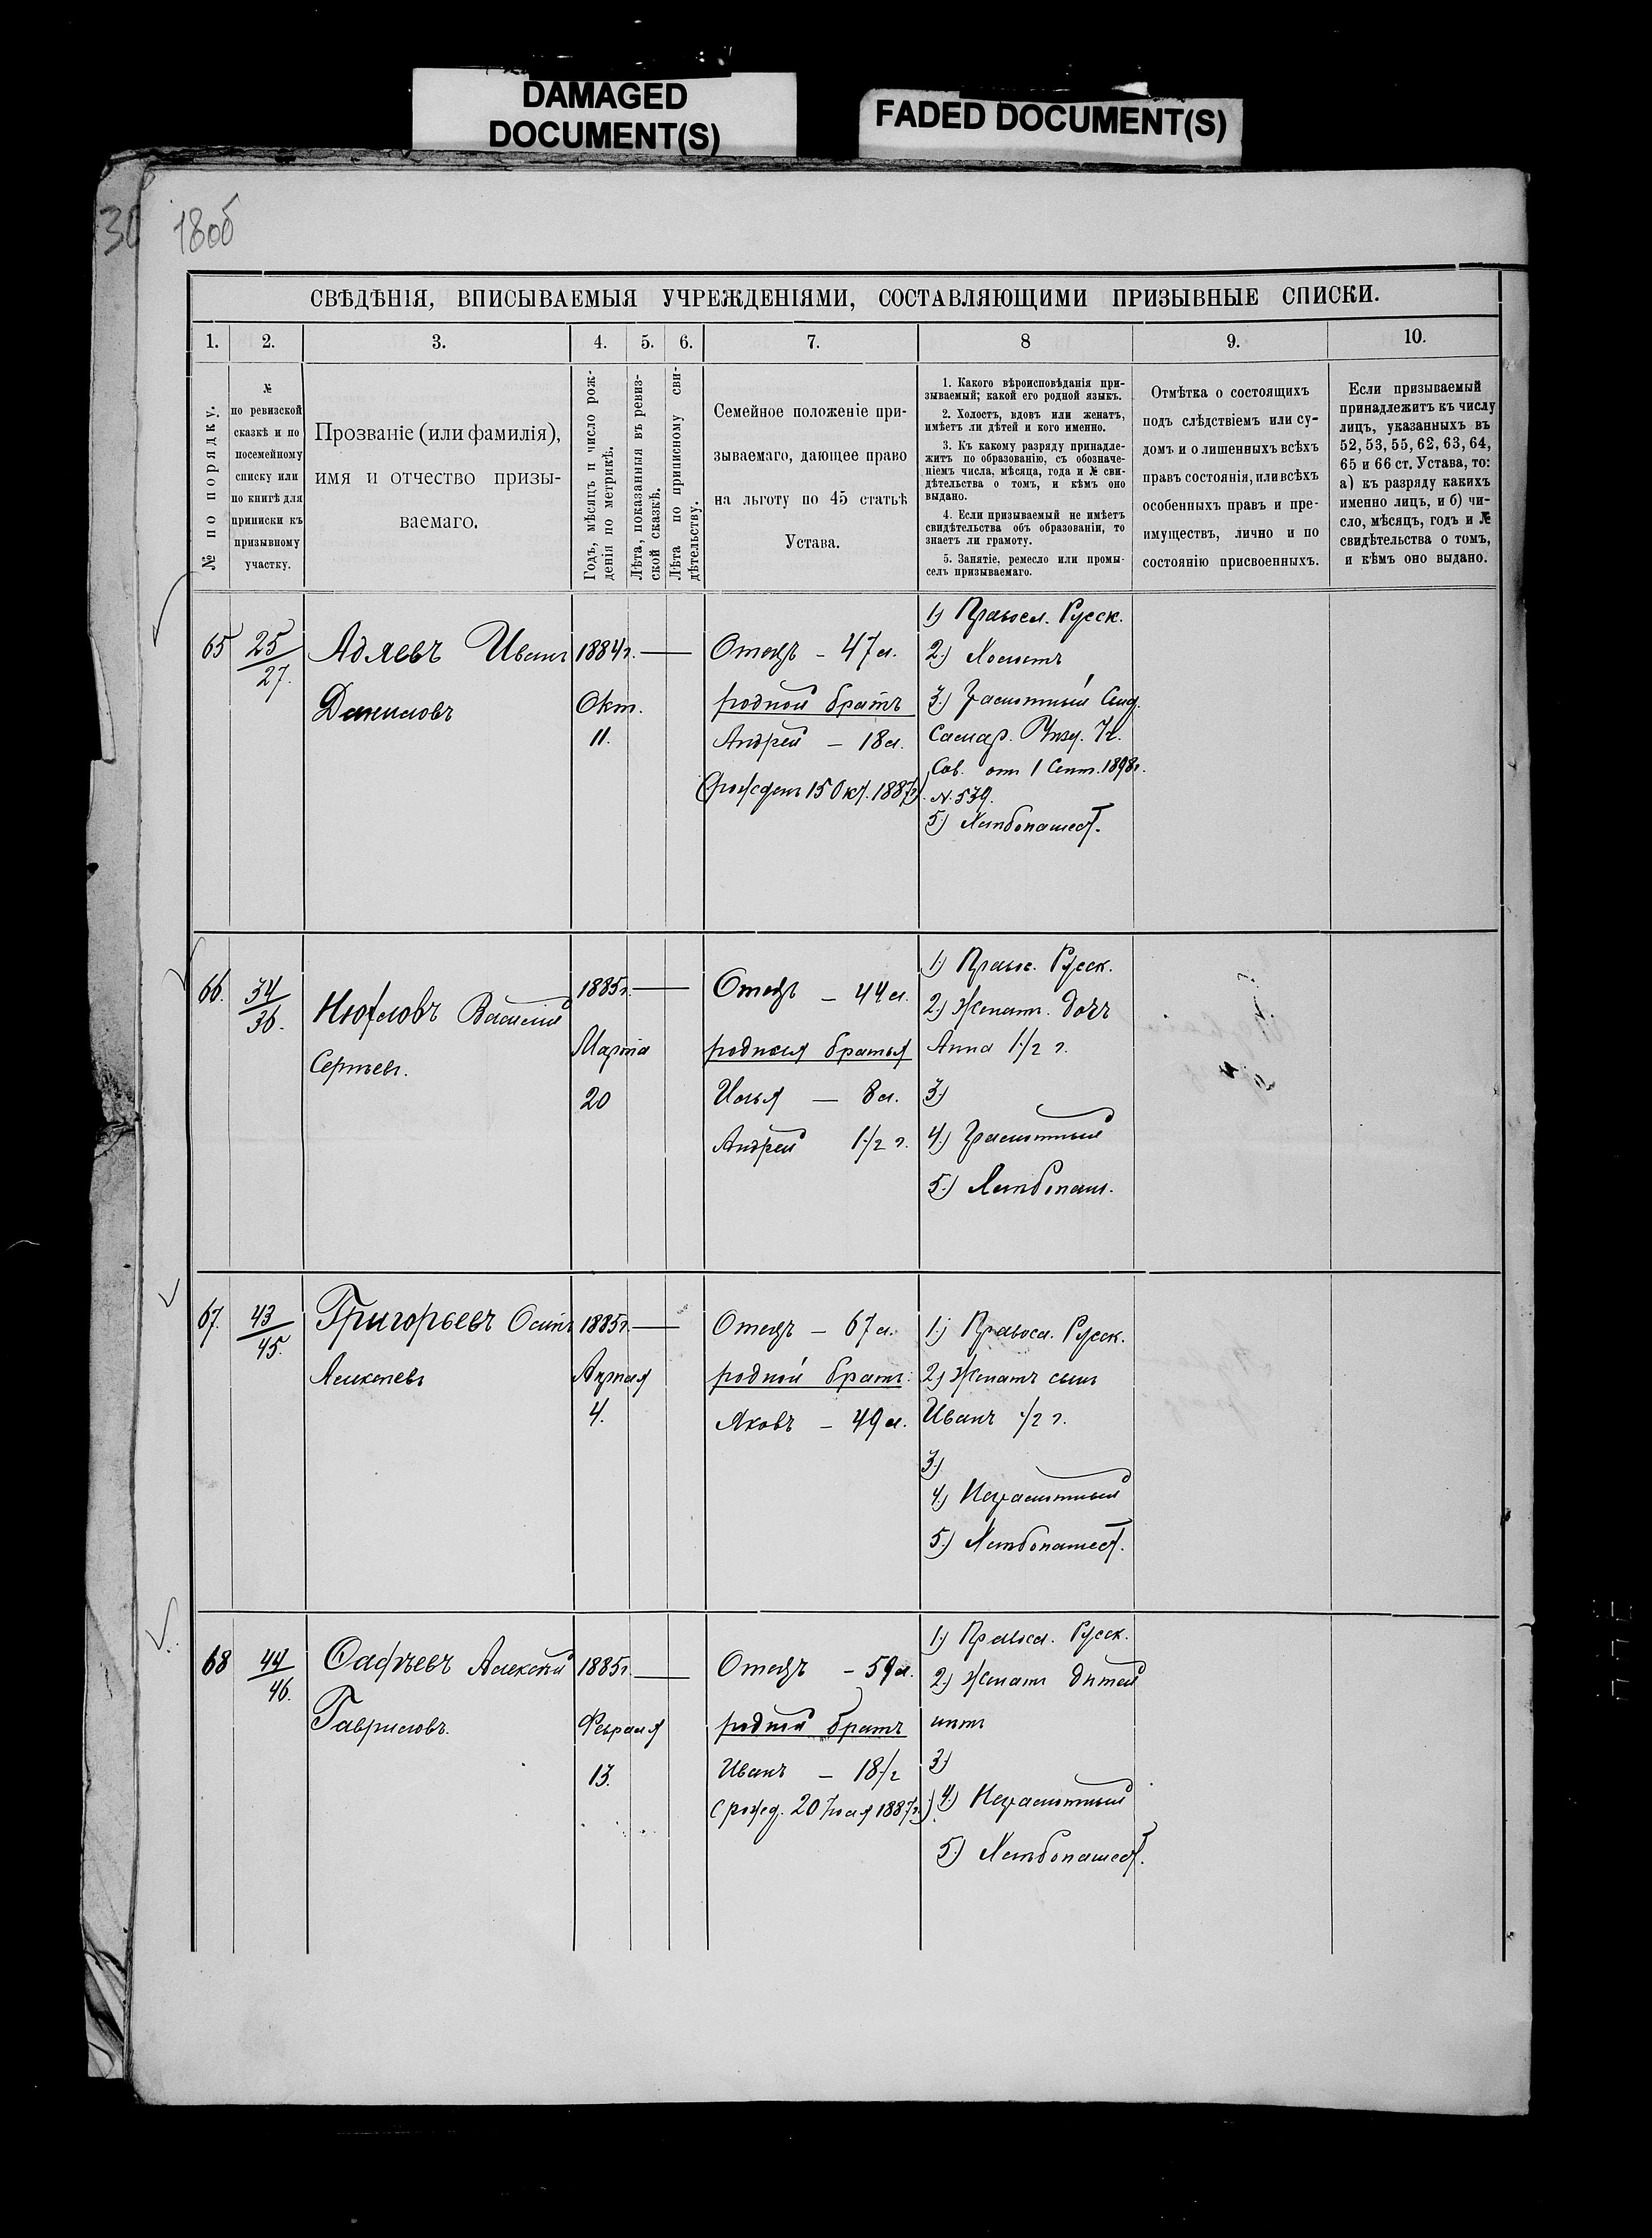 DAMAGED
DOCUMENT(S)
FADED DOCUMENT(S)
30
18об
СВѢДѢНІЯ, ВПИСЫВАЕМЫЯ УЧРЕЖДЕНІЯМИ, СОСТАВЛЯЮЩИМИ ПРИЗЫВНЫЕ СПИСКИ.
1.
2.
3.
4.
5.
6.
7.
8
9.
10.
№ по порядку.
№
по ревизской
сказкѣ и по
посемейному
списку или
по книгѣ для
приписки къ
призывному
участку.
Прозваніе (или фамилія),
имя и отчество призы-
ваемаго.
Годъ, мѣсяцъ и число рож-
денія по метрикѣ.
Лѣта, показанныя въ ревиз-
ской сказкѣ.
Лѣта по приписному сви-
дѣтельству.
Семейное положеніе при-
зываемаго, дающее право
на льготу по 45 статьѣ
Устава.
1. Какого вѣроисповѣданія при-
зываемый; какой его родной языкъ.
2. Холостъ, вдовъ или женатъ,
имѣетъ ли дѣтей и кого именно.
3. Къ какому разряду принадле-
житъ по образованію, съ обозначе-
ніемъ числа, мѣсяца, года и № сви-
дѣтельства о томъ, и кѣмъ оно
выдано.
4. Если призываемый не имѣетъ
свидѣтельства объ образованіи, то
знаетъ ли грамоту.
5. Занятіе, ремесло или промы-
селъ призываемаго.
Отмѣтка о состоящихъ
подъ слѣдствіемъ или су-
домъ и о лишенныхъ всѣхъ
правъ состоянія, или всѣхъ
особенныхъ правъ и пре-
имуществъ, лично и по
состоянію присвоенныхъ.
Если призываемый
принадлежитъ къ числу
лицъ, указанныхъ въ
52, 53, 55, 62, 63, 64,
65 и 66 ст. Устава, то:
а) къ разряду какихъ
именно лицъ, и б) чи-
сло, мѣсяцъ, годъ и №
свидѣтельства о томъ,
и кѣмъ оно выдано.
65
25
27.
Адяевъ Иванъ
Даниловъ
1884г.
Окт.
11.
Отецъ – 47 л.
родной братъ
Андрей – 18 л.
(рожден 15 Окт. 1887г.)
1) Правосл. Русск.
2.) Холостъ
3.) Грамотный Свид.
Самар. Уѣзд. Уч.
Сов. от 1 Сент. 1898г.
N. 539.
5) Хлѣбопашест.
66.
34
36.
Василій
Сергѣев.
1885г.
Марта
20
Отецъ – 44 л.
родные братья
Илья – 8 л.
Андрей 1 1/2 г.
1.) Правос. Русск.
2) Женатъ. дочь
Анна 1 1/2 г.
3)
4.) Грамотный
5.) Хлѣбопаш.
67.
43
45.
Григорьевъ Осипъ
Алексѣевъ
1885г.
Апрѣля
4.
Отецъ – 67 л.
родной братъ:
Яковъ – 49 л.
1.) Правосл. Русск.
2) Женатъ сынъ
Иванъ 1/2 г.
3)
4.) Неграмотный
5.) Хлѣбопашест.
68
44
46.
Алексѣй
Гавриловъ.
1885г.
Февраля
13.
Отецъ – 59 л.
родной братъ
Иванъ – 18 1/2
(рожд. 20 Іюля 1887г.)
1.) Правосл. Русск.
2.) Женатъ дѣтей
нѣтъ
3)
4.) Неграмотный
5.) Хлѣбопашест.